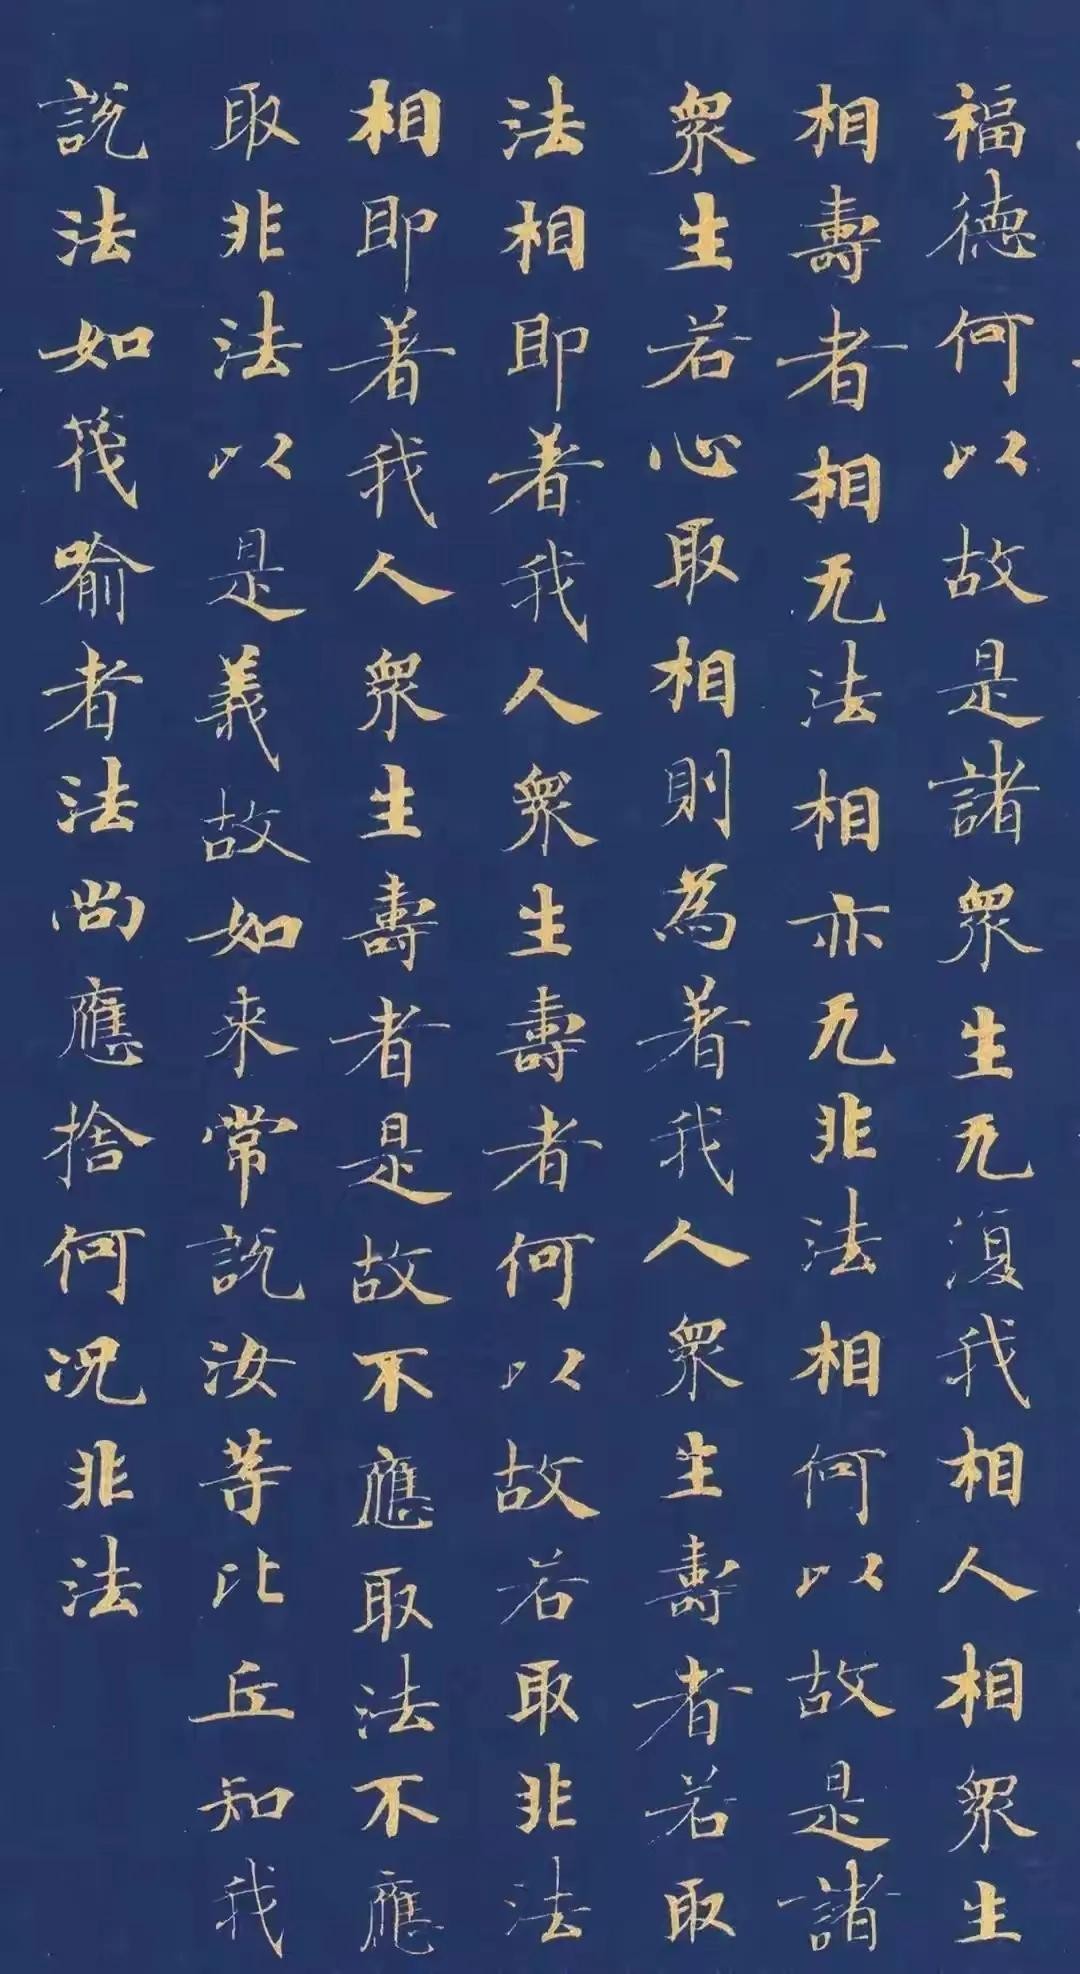 福德何以故是諸衆生无復我相人相衆生
相壽者相无法相亦无非法相何以故是諸
衆生若心取相則為著我人衆生壽者若取
法相即著我人衆生壽者何以故若取非法
相即著我人衆生壽者是故不應取法不應
取非法以是義故如来常説汝等比丘知我
説法如筏喻者法尚應捨何况非法